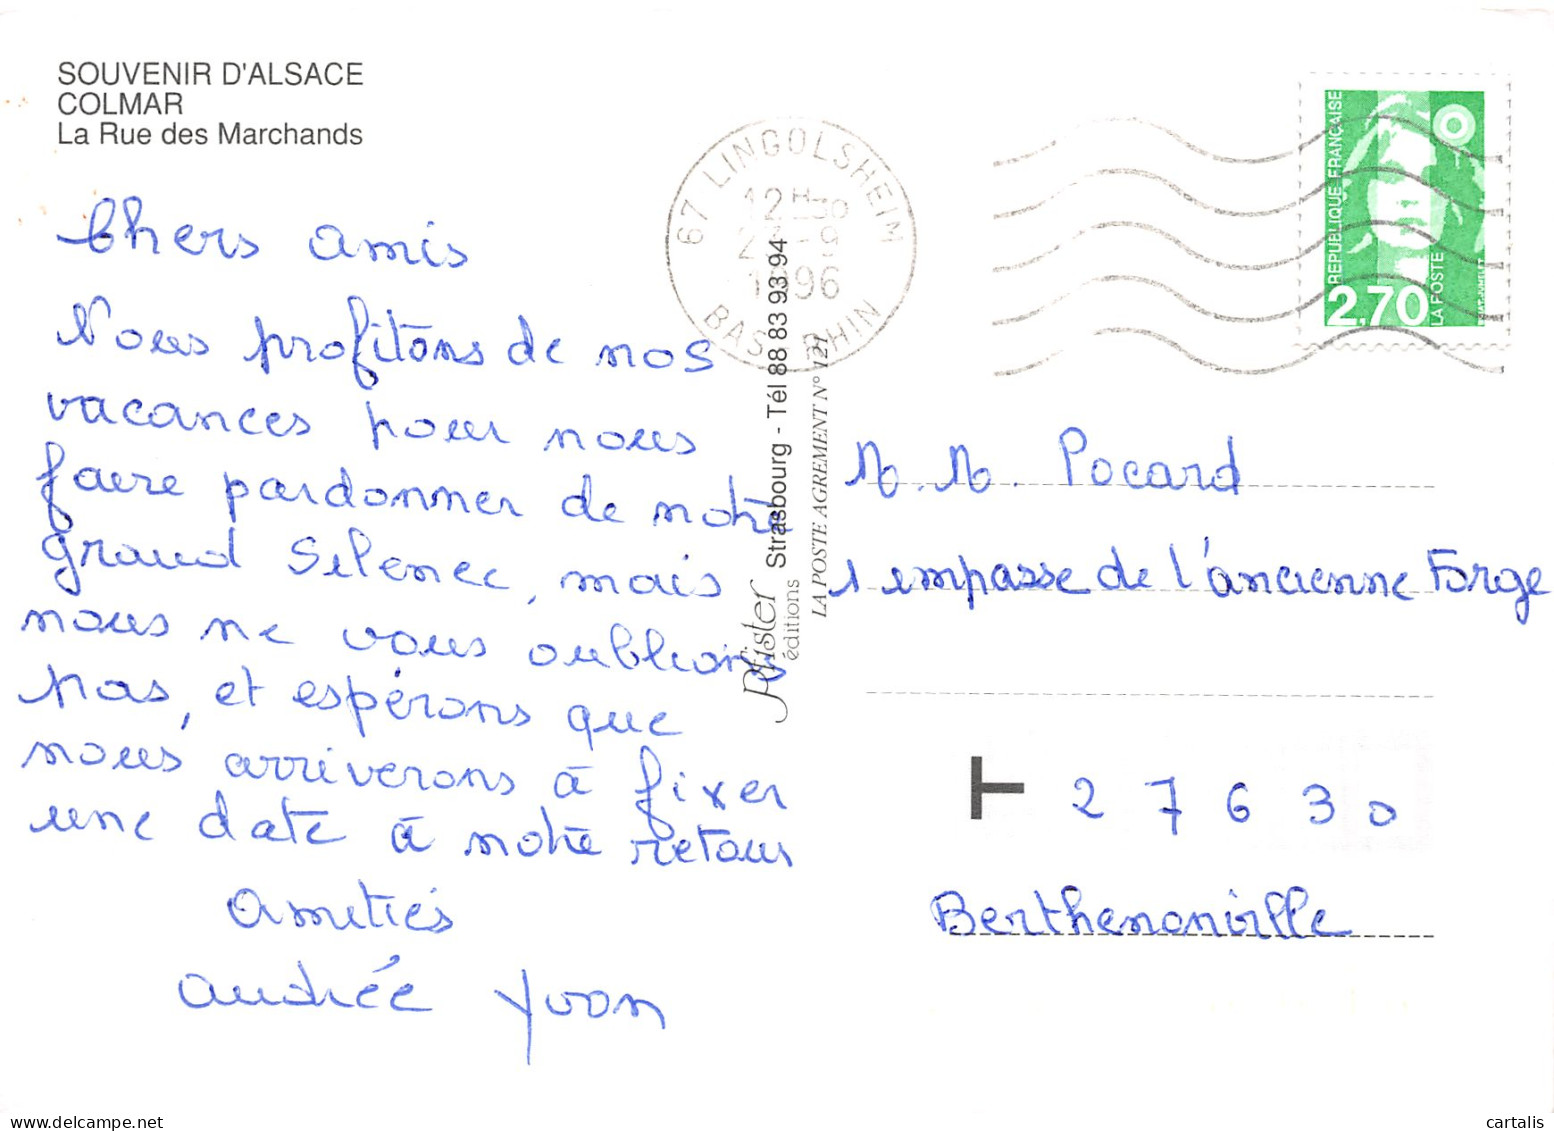 SOUVENIR D'ALSACE
COLMAR
La Rue des Marchands
Chers amis
Nous profitons de nos
vacances pour nous
faire pardonner de notre
grand Silence, mais
nous ne vous oublions
pas, et espérons que
nous arriverons à fixer
une date à notre retour
Amitiés
Andrée Yvon
67 LINGOLSHEIM
12H30
1996
BAS RHIN
Pfister
éditions
Strasbourg - Tél 88 83 93 94
LA POSTE AGREMENT N° 121
REPUBLIQUE FRANÇAISE
2,70
LA POSTE
M. M. Pocard
1 impasse de l'ancienne Forge
27630
Berthenonville
cartalis
www.delcampe.net